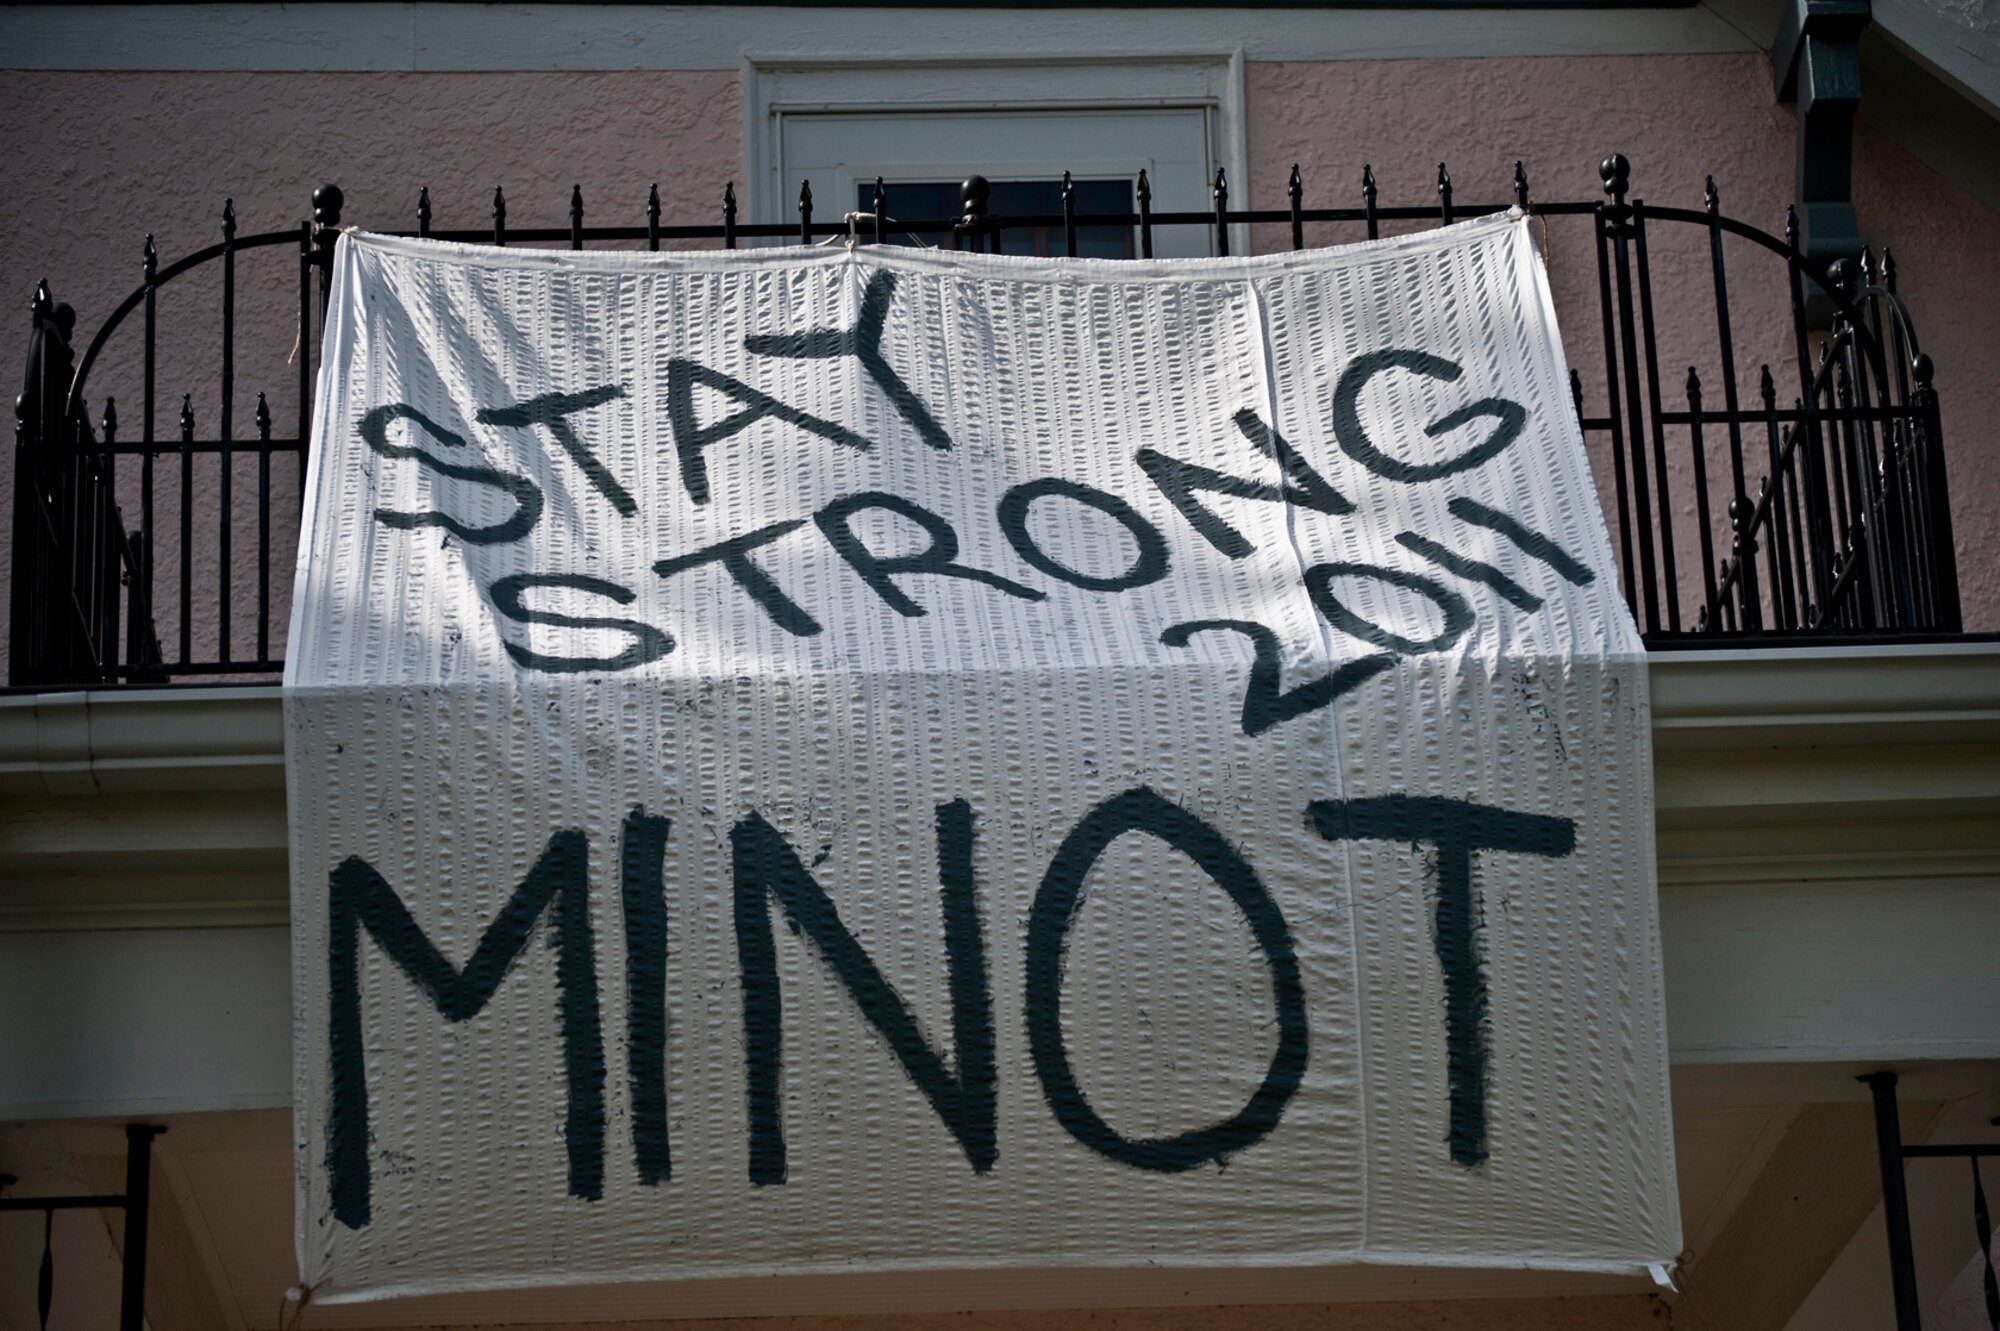 STAY
STRONG
2011
MINOT